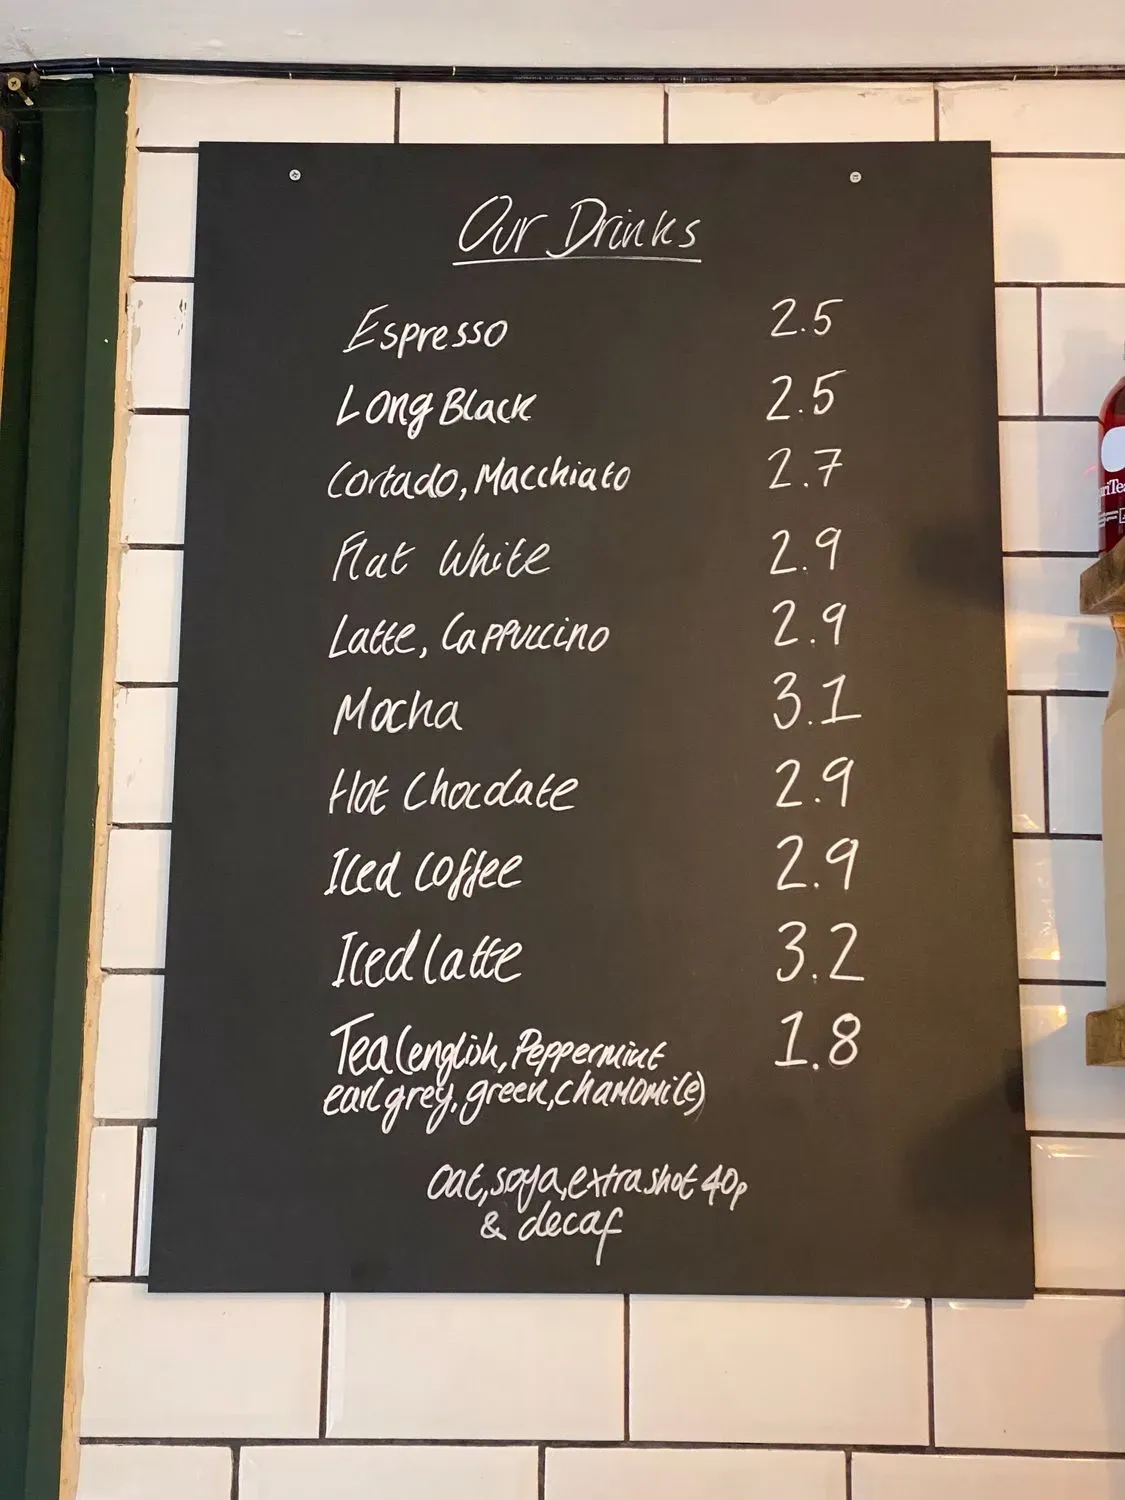 Our Drinks
Espresso 2.5
Long Black 2.5
Cortado, Macchiato 2.7
Flat White 2.9
Latte, Cappuccino 2.9
Mocha 3.1
Hot Chocolate 2.9
Iced Coffee 2.9
Iced latte 3.2
Tea (english, Peppermint 1.8
earl grey, green, chamomile)
Oat, soya, extra shot 40p
& decaf